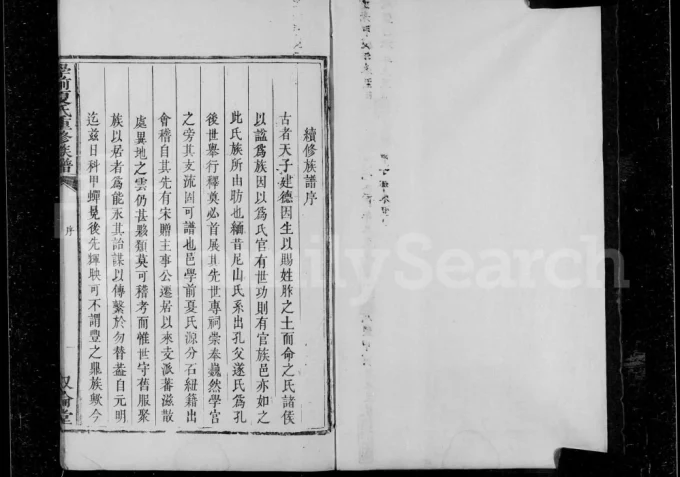 續修族譜序
古者天子建德因生以賜姓胙之土而命之氏諸侯
以諡為族因以為氏官有世功則有官族邑亦如之
此氏族所由肪也緬昔尼山氏系出孔父遂氏為孔
後世舉行釋奠必首展其先世專祠崇奉巍然學官
之旁其支流固可譜也邑學前夏氏源分石紐籍出
會稽自其先有宋贈主事公遷居以來支派蕃滋散
處異地之雲仍甚夥類莫可稽考而惟世守舊服聚
族以居者為能承其詒謀以傳繫於勿替蓋自元明
迄茲日科甲蟬冕後先輝映可不謂豐之鼎族歟今
學前夏氏重修族譜
序
叙倫堂
FamilySearch